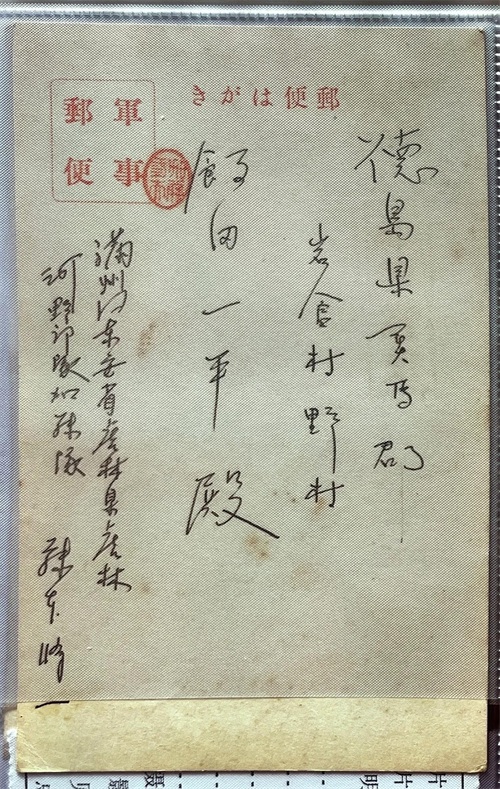 郵便はがき
軍事
郵便
徳島県美馬郡
岩倉村野村
飯田一平殿
満州国東安省虎林県虎林
河野部隊加藤隊
藤本修一